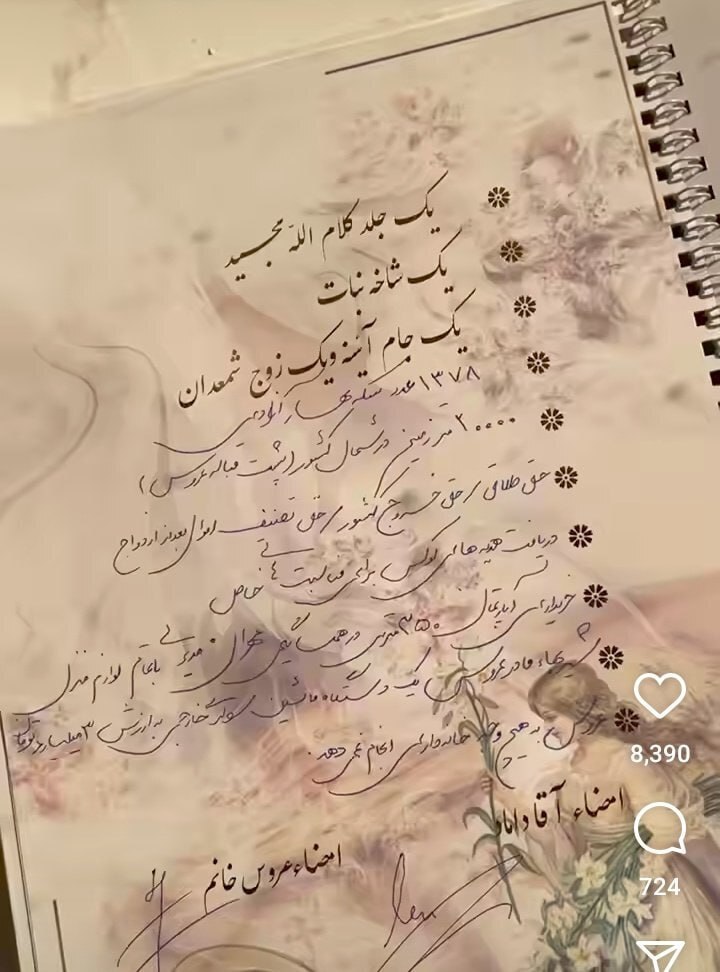 یک جلد کلام الله مجید
یک شاخه نبات
یک جام آینه ویک زوج شمعدان
۱۳۷۸ عدد سکه بهار آزادی
۲۰۰۰۰ متر زمین در شمال کشور (پشت قباله عروس)
حق طلاق / حق خروج کشور / حق تصنیف اموال بعد از ازدواج
دریافت هدیه های لوکس برای مناسبت های خاص
خریداری آپارتمان ۳۵۰ متری در تهران با تمام لوازم منزل
شیربهاء مادر عروس یک دستگاه ماشین سواری خارجی به ارزش ۳ میلیارد تومان
عروس به هیچ وجه خانه داری انجام نمی دهد.
امضاء آقا داماد
امضاء عروس خانم
8,390
724